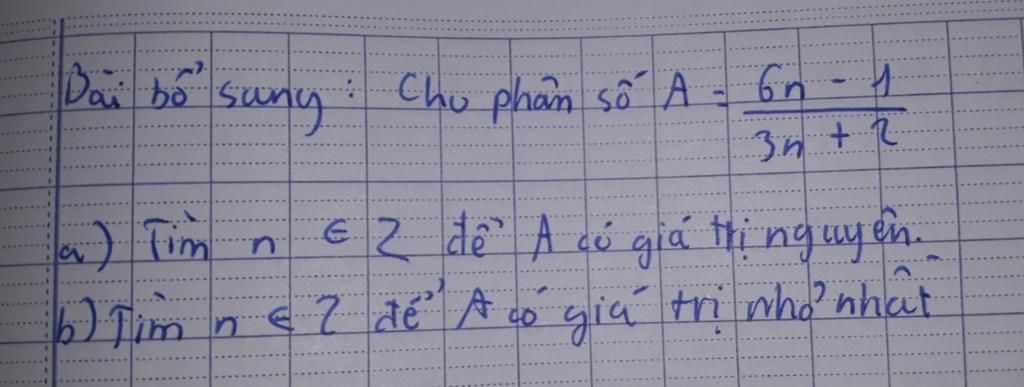 Bài bổ sung: Cho phân số A = (6n - 1)/(3n + 2)
a) Tìm n ∈ Z để A có giá trị nguyên.
b) Tìm n ∈ Z để A có giá trị nhỏ nhất